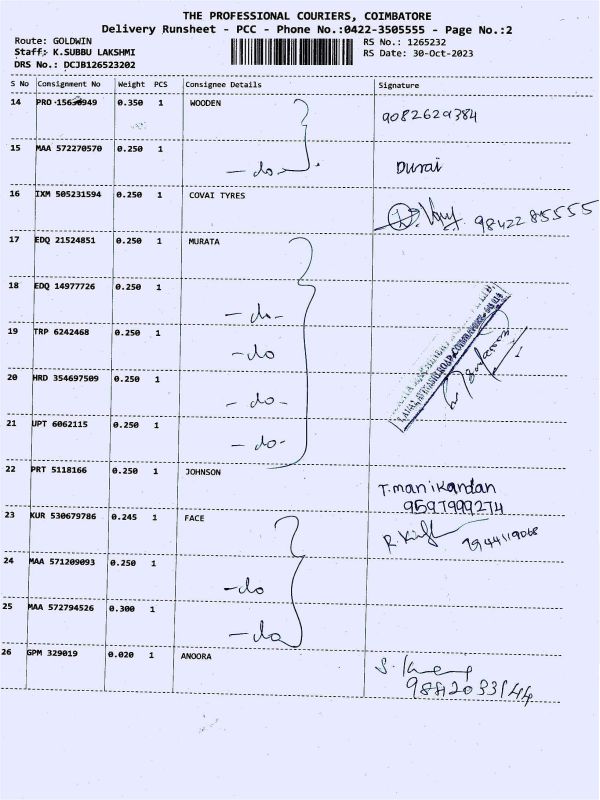 THE PROFESSIONAL COURIERS, COIMBATORE
Delivery Runsheet - PCC - Phone No.:0422-3505555 - Page No.:2
Route: GOLDWIN
Staff: K.SUBBU LAKSHMI
DRS No.: DCJB126523202
RS No.: 1265232
RS Date: 30-Oct-2023
S No Consignment No Weight PCS Consignee Details Signature
14 PRO 0.350 1 WOODEN 9082629384
15 MAA 572270570 0.250 1 -do- Durai
16 IXM 505231594 0.250 1 COVAI TYRES 9842285555
17 EDQ 21524851 0.250 1 MURATA
18 EDQ 14977726 0.250 1 -do-
19 TRP 6242468 0.250 1 -do
20 HRD 354697509 0.250 1 -do-
21 UPT 6062115 0.250 1 -do-
22 PRT 5118166 0.250 1 JOHNSON T.manikandan
9597999274
23 KUR 530679786 0.245 1 FACE
24 MAA 571209093 0.250 1 -do
25 MAA 572794526 0.300 1 -do
26 GPM 329019 0.020 1 ANOORA